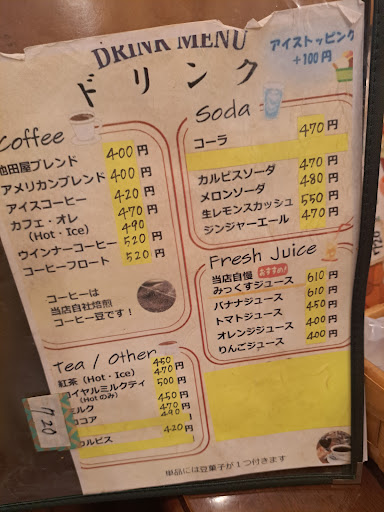 DRINK MENU
ドリンク
アイストッピング
+100円
Coffee
池田屋ブレンド 400円
アメリカンブレンド 400円
アイスコーヒー 420円
カフェ・オレ 470円
(Hot・Ice) 490
ウインナーコーヒー 520円
コーヒーフロート 520円
コーヒーは
当店自社焙煎
コーヒー豆です!
Soda
コーラ 470円
カルピスソーダ 470円
メロンソーダ 480円
生レモンスカッシュ 550円
ジンジャーエール 470円
Fresh Juice
当店自慢 おすすめ!
みっくすジュース 610円
バナナジュース 610円
トマトジュース 450円
オレンジジュース 400円
りんごジュース 400円
Tea / Other
450
紅茶 (Hot・Ice) 470円
イヤルミルクティ 500円
(Hotのみ)
ミルク 450円
ココア 470円
490
カルピス 420円
720
単品には豆菓子が1つ付きます